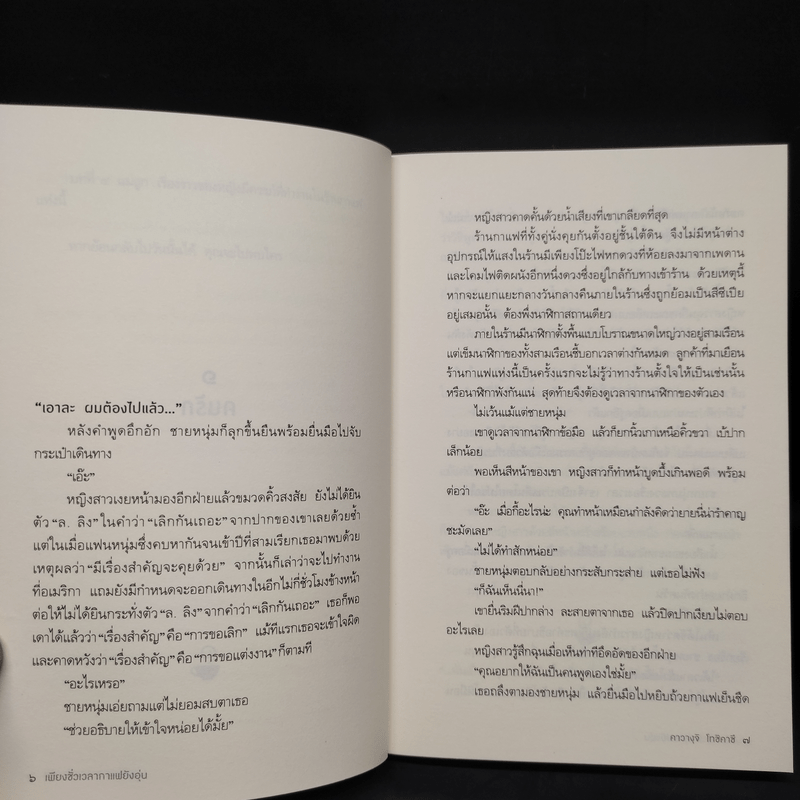 “เอาละ ผมต้องไปแล้ว...”
หลังคำพูดอึกอัก ชายหนุ่มก็ลุกขึ้นยืนพร้อมยื่นมือไปจับ
กระเป๋าเดินทาง
“เอ๊ะ”
หญิงสาวเงยหน้ามองอีกฝ่ายแล้วขมวดคิ้วสงสัย ยังไม่ได้ยิน
ตัว “ล. ลิง” ในคำว่า “เลิกกันเถอะ” จากปากของเขาเลยด้วยซ้ำ
แต่ในเมื่อแฟนหนุ่มซึ่งคบหากันจนเข้าปีที่สามเรียกเธอมาพบด้วย
เหตุผลว่า “มีเรื่องสำคัญจะคุยด้วย” จากนั้นก็เล่าว่าจะไปทำงาน
ที่อเมริกา แถมยังมีกำหนดจะออกเดินทางในอีกไม่กี่ชั่วโมงข้างหน้า
ต่อให้ไม่ได้ยินกระทั่งตัว “ล. ลิง” จากคำว่า “เลิกกันเถอะ” เธอก็พอ
เดาได้แล้วว่า “เรื่องสำคัญ” คือ “การขอเลิก” แม้ทีแรกเธอจะเข้าใจผิด
และคาดหวังว่า “เรื่องสำคัญ” คือ “การขอแต่งงาน” ก็ตามที
“อะไรเหรอ”
ชายหนุ่มเอ่ยถามแต่ไม่ยอมสบตาเธอ
“ช่วยอธิบายให้เข้าใจหน่อยได้มั้ย”
๖ เพียงชั่วเวลากาแฟยังอุ่น
หญิงสาวคาดคั้นด้วยน้ำเสียงที่เขาเกลียดที่สุด
ร้านกาแฟที่ทั้งคู่นั่งคุยกันตั้งอยู่ชั้นใต้ดิน จึงไม่มีหน้าต่าง
อุปกรณ์ให้แสงในร้านมีเพียงโป๊ะไฟหกดวงที่ห้อยลงมาจากเพดาน
และโคมไฟติดผนังอีกหนึ่งดวงซึ่งอยู่ใกล้กับทางเข้าร้าน ด้วยเหตุนี้
หากจะแยกแยะกลางวันกลางคืนภายในร้านซึ่งถูกย้อมเป็นสีซีเปีย
อยู่เสมอนั้น ต้องพึ่งนาฬิกาสถานเดียว
ภายในร้านมีนาฬิกาตั้งพื้นแบบโบราณขนาดใหญ่วางอยู่สามเรือน
แต่เข็มนาฬิกาของทั้งสามเรือนชี้บอกเวลาต่างกันหมด ลูกค้าที่มาเยือน
ร้านกาแฟแห่งนี้เป็นครั้งแรกจะไม่รู้ว่าทางร้านตั้งใจให้เป็นเช่นนั้น
หรือนาฬิกาพังกันแน่ สุดท้ายจึงต้องดูเวลาจากนาฬิกาของตัวเอง
ไม่เว้นแม้แต่ชายหนุ่ม
เขาดูเวลาจากนาฬิกาข้อมือ แล้วก็ยกนิ้วเกาเหนือคิ้วขวา เบ้ปาก
เล็กน้อย
พอเห็นสีหน้าของเขา หญิงสาวก็ทำหน้าบูดบึ้งเกินพอดี พร้อม
ต่อว่า
“อ๊ะ เมื่อกี้อะไรน่ะ คุณทำหน้าเหมือนกำลังคิดว่ายายนี่น่ารำคาญ
ชะมัดเลย”
“ไม่ได้ทำสักหน่อย”
ชายหนุ่มตอบกลับอย่างกระสับกระส่าย แต่เธอไม่ฟัง
“ก็ฉันเห็นนี่นา!”
เขายื่นริมฝีปากล่าง ละสายตาจากเธอ แล้วปิดปากเงียบไม่ตอบ
อะไรเลย
หญิงสาวรู้สึกฉุนเมื่อเห็นท่าทีอึดอัดของอีกฝ่าย
“คุณอยากให้ฉันเป็นคนพูดเองใช่มั้ย”
เธอถลึงตามองชายหนุ่ม แล้วยื่นมือไปหยิบถ้วยกาแฟเย็นชืด
คาวางุจิ โทชิคาซึ ๗